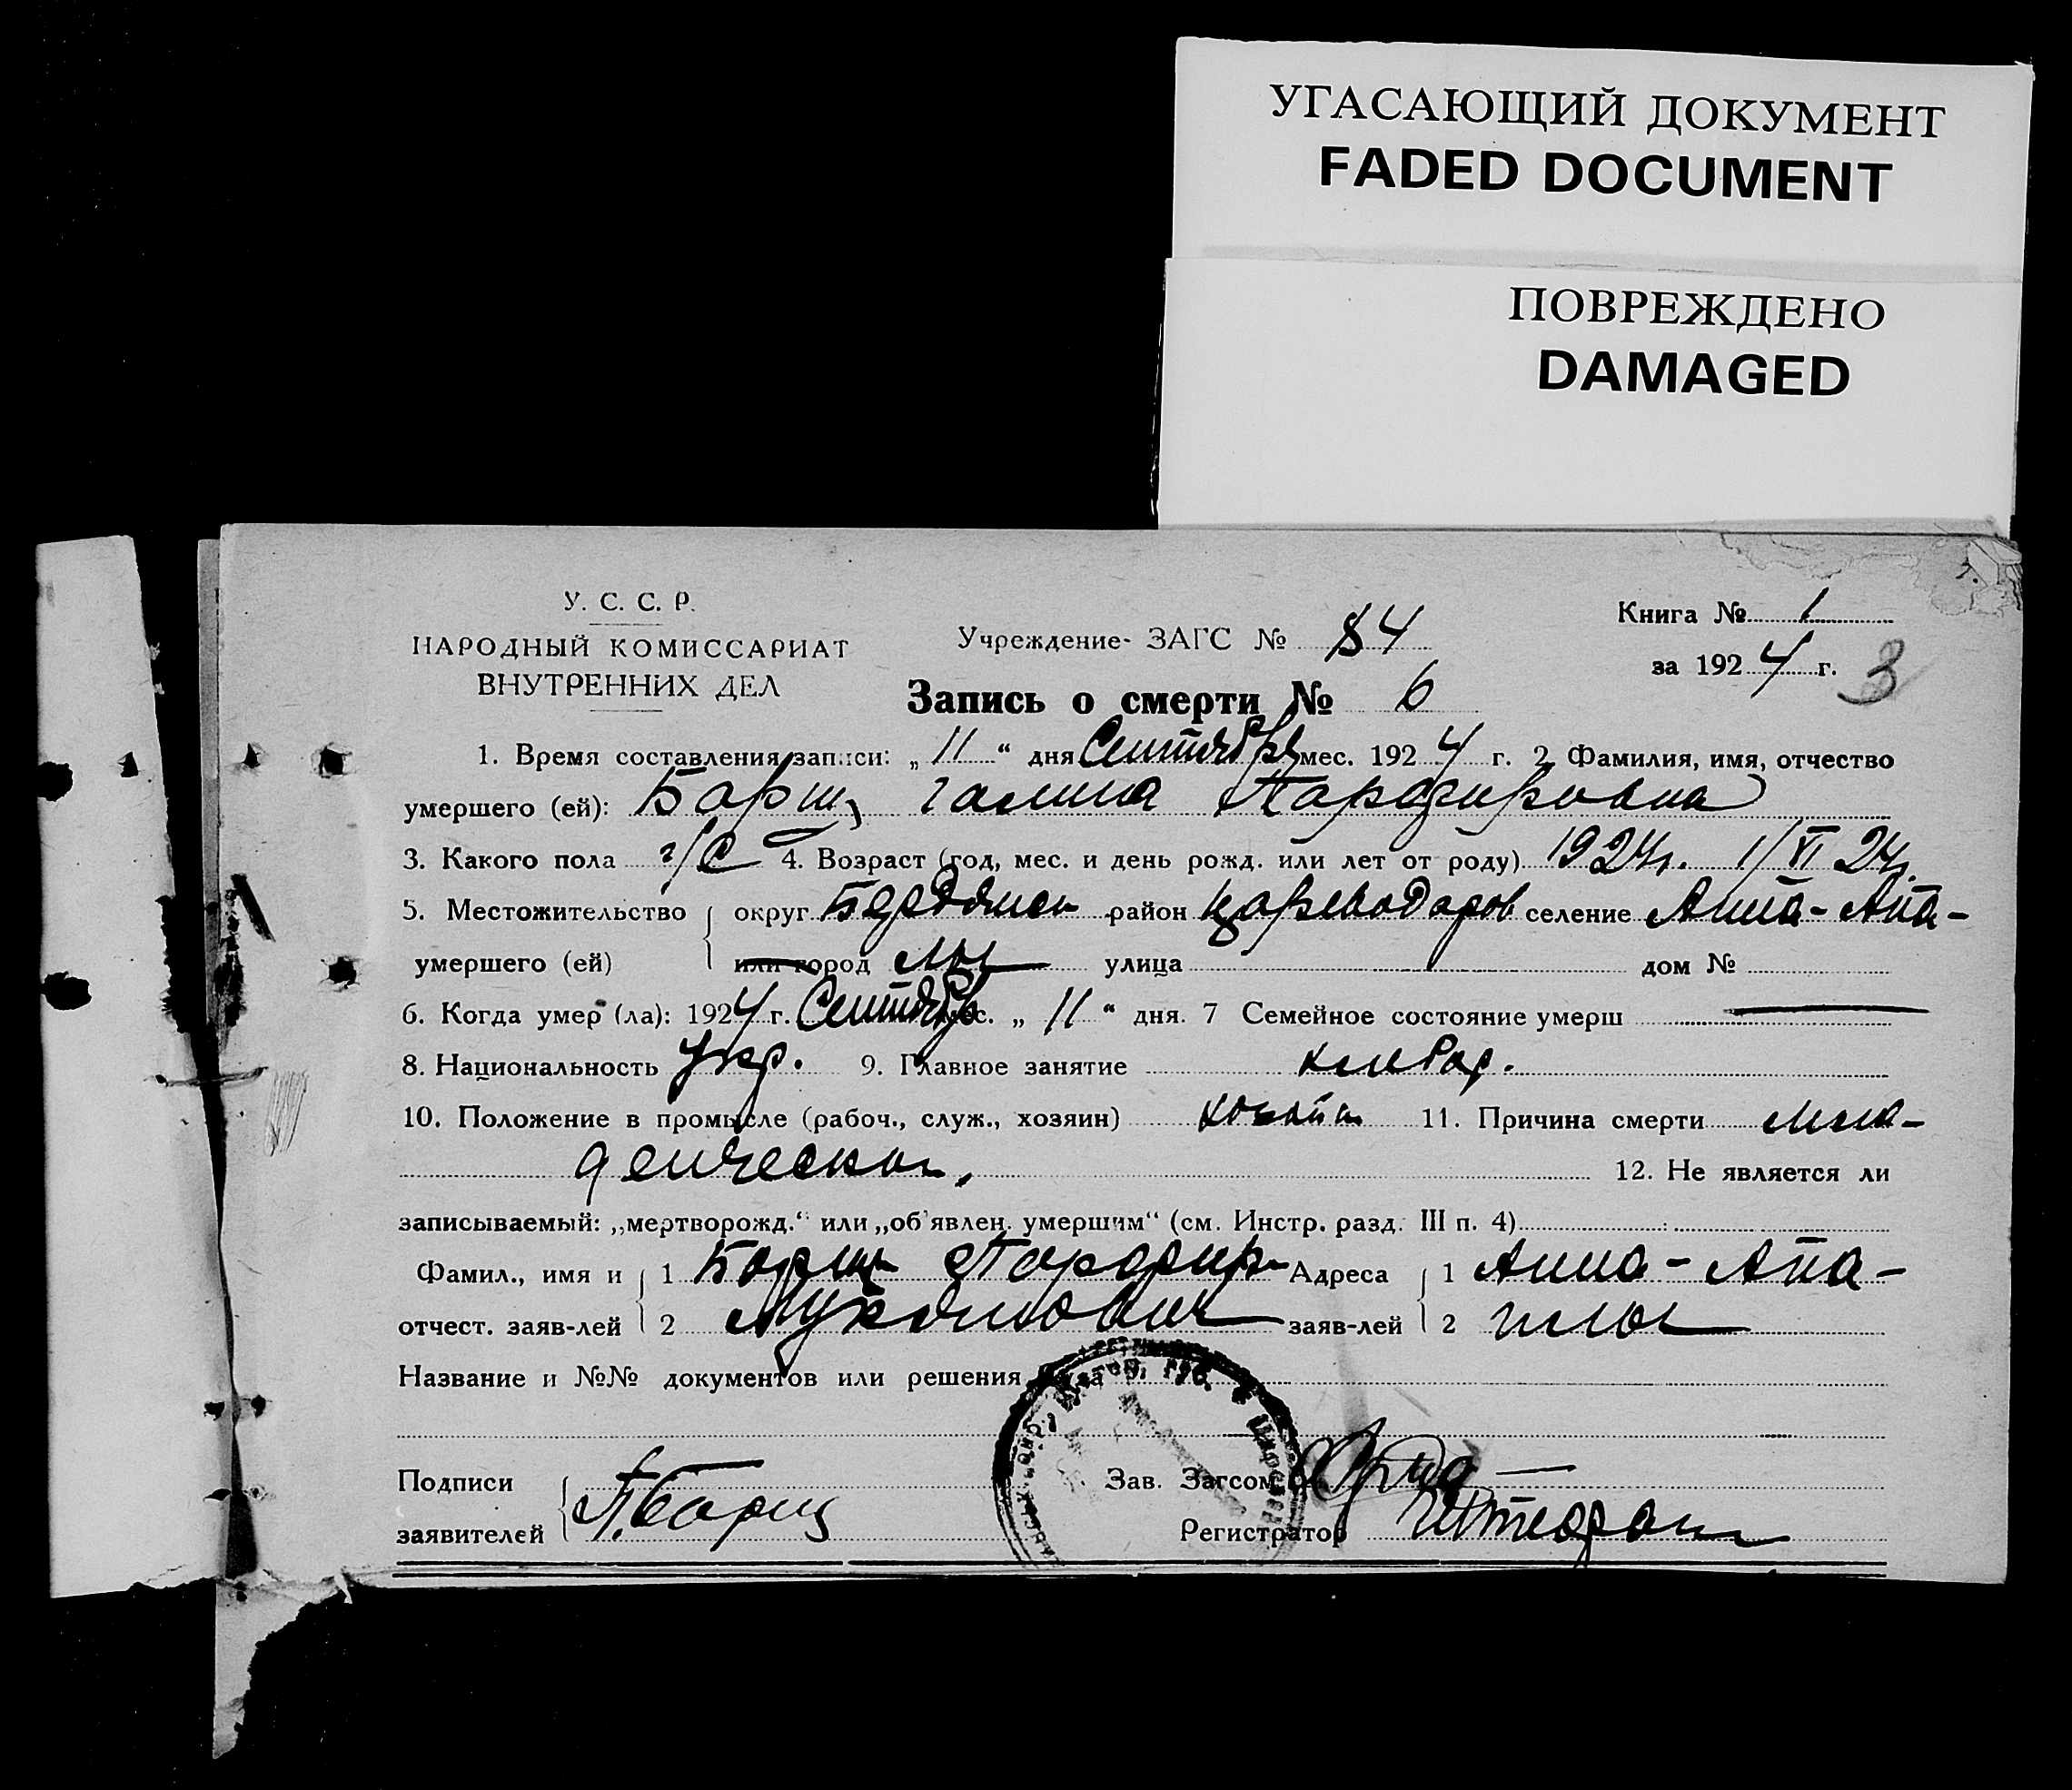 УГАСАЮЩИЙ ДОКУМЕНТ
FADED DOCUMENT
ПОВРЕЖДЕНО
DAMAGED
У. С. С. Р.
НАРОДНЫЙ КОМИССАРИАТ
ВНУТРЕННИХ ДЕЛ
Учреждение- ЗАГС № 84
Книга № 1
за 1924 г. 3
Запись о смерти № 6
1. Время составления записи: „ 11 “ дня Сентября мес. 1924 г. 2. Фамилия, имя, отчество
умершего (ей): Борщ, Галина
3. Какого пола 4. Возраст (год, мес. и день рожд. или лет от роду) 1924г. 1/VI 24г.
5. Местожительство округ Бердянск район Цареводаров селение Анна-Апа-
умершего (ей) или город улица дом №
6. Когда умер (ла): 1924 г. Сентября мес. „ 11 “ дня. 7 Семейное состояние умерш
8. Национальность Укр. 9. Главное занятие хлебор.
10. Положение в промысле (рабоч., служ., хозяин) 11. Причина смерти мла-
денческая,
12. Не является ли
записываемый: „мертворожд.“ или „об'явлен. умершим“ (см. Инстр. разд. III п. 4)
Фамил., имя и 1 Борщ Порфир- Адреса 1 Анна-Апа-
отчест. заяв-лей 2 заяв-лей 2
Название и №№ документов или решения суда
Подписи Зав. Загсом
заявителей П. Борщ Регистратор